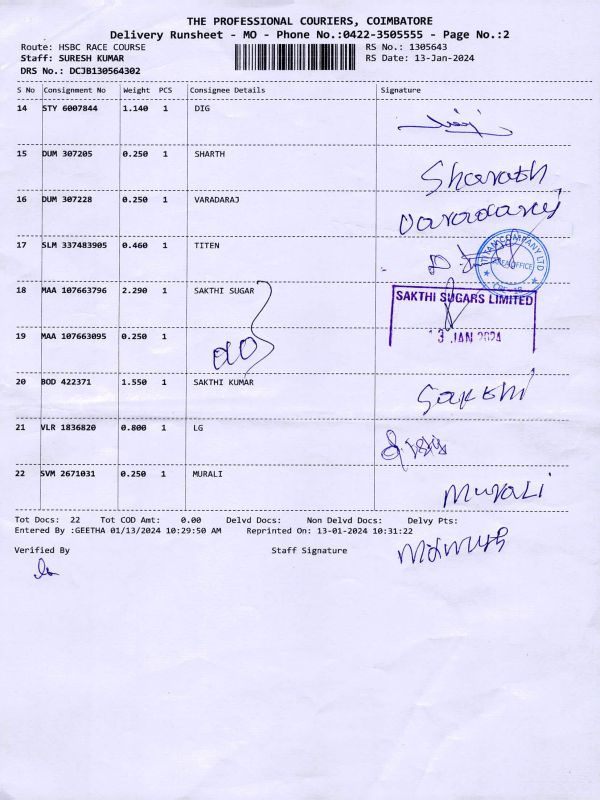 THE PROFESSIONAL COURIERS, COIMBATORE
Delivery Runsheet - MO - Phone No.:0422-3505555 - Page No.:2
Route: HSBC RACE COURSE RS No.: 1305643
Staff: SURESH KUMAR RS Date: 13-Jan-2024
DRS No.: DCJB130564302
S No Consignment No Weight PCS Consignee Details Signature
14 STY 6007844 1.140 1 DIG
15 DUM 307205 0.250 1 SHARTH Sharath
16 DUM 307228 0.250 1 VARADARAJ Varadaraj
17 SLM 337483905 0.460 1 TITEN
TITAN COMPANY LTD
18 MAA 107663796 2.290 1 SAKTHI SUGAR SAKTHI SUGARS LIMITED
19 MAA 107663095 0.250 1 13 JAN 2024
20 BOD 422371 1.550 1 SAKTHI KUMAR Sakthi
21 VLR 1836820 0.800 1 LG
22 SVM 2671031 0.250 1 MURALI Murali
Tot Docs: 22 Tot COD Amt: 0.00 Delvd Docs: Non Delvd Docs: Delvy Pts:
Entered By :GEETHA 01/13/2024 10:29:50 AM Reprinted On: 13-01-2024 10:31:22
Verified By Staff Signature